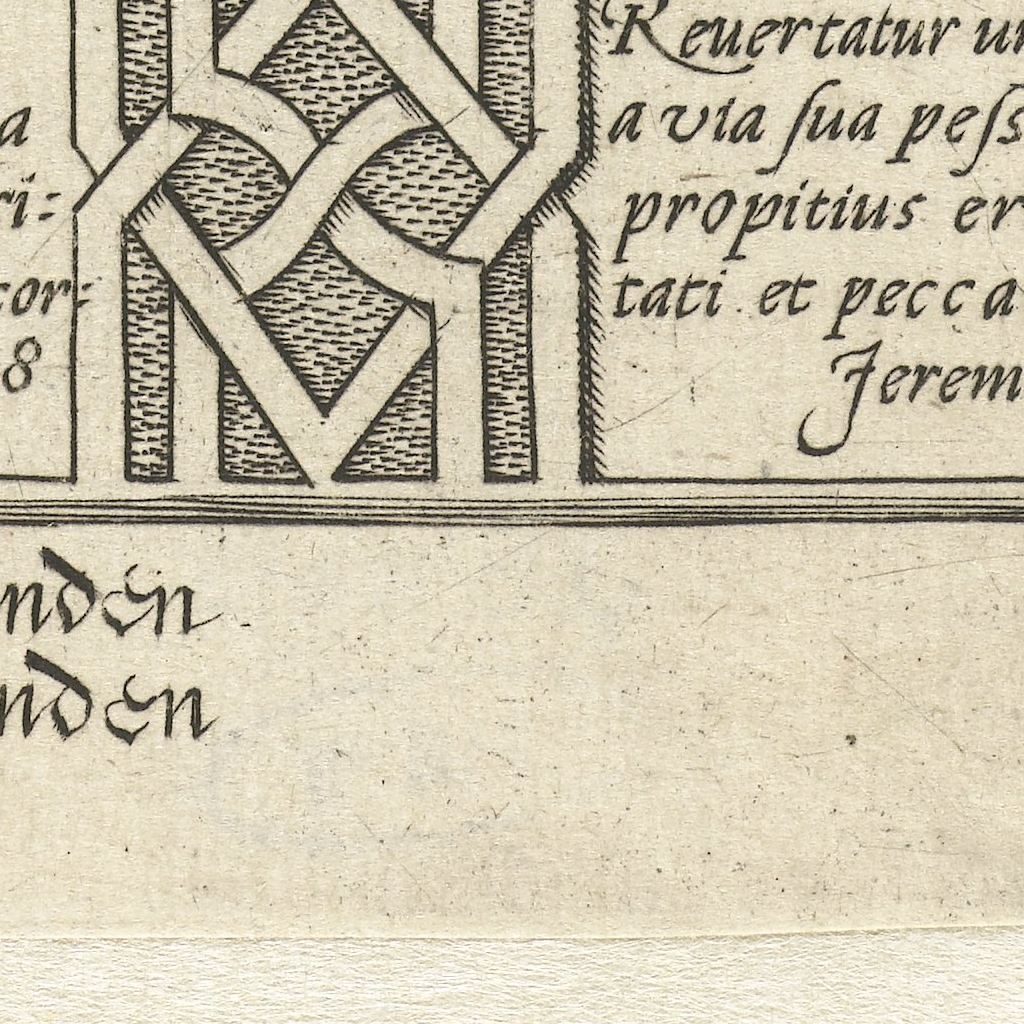 a
ri:
cor:
8
Reuertatur un
a via ſua peſs
propitius er
tati et pecca
Jerem
nden
nden